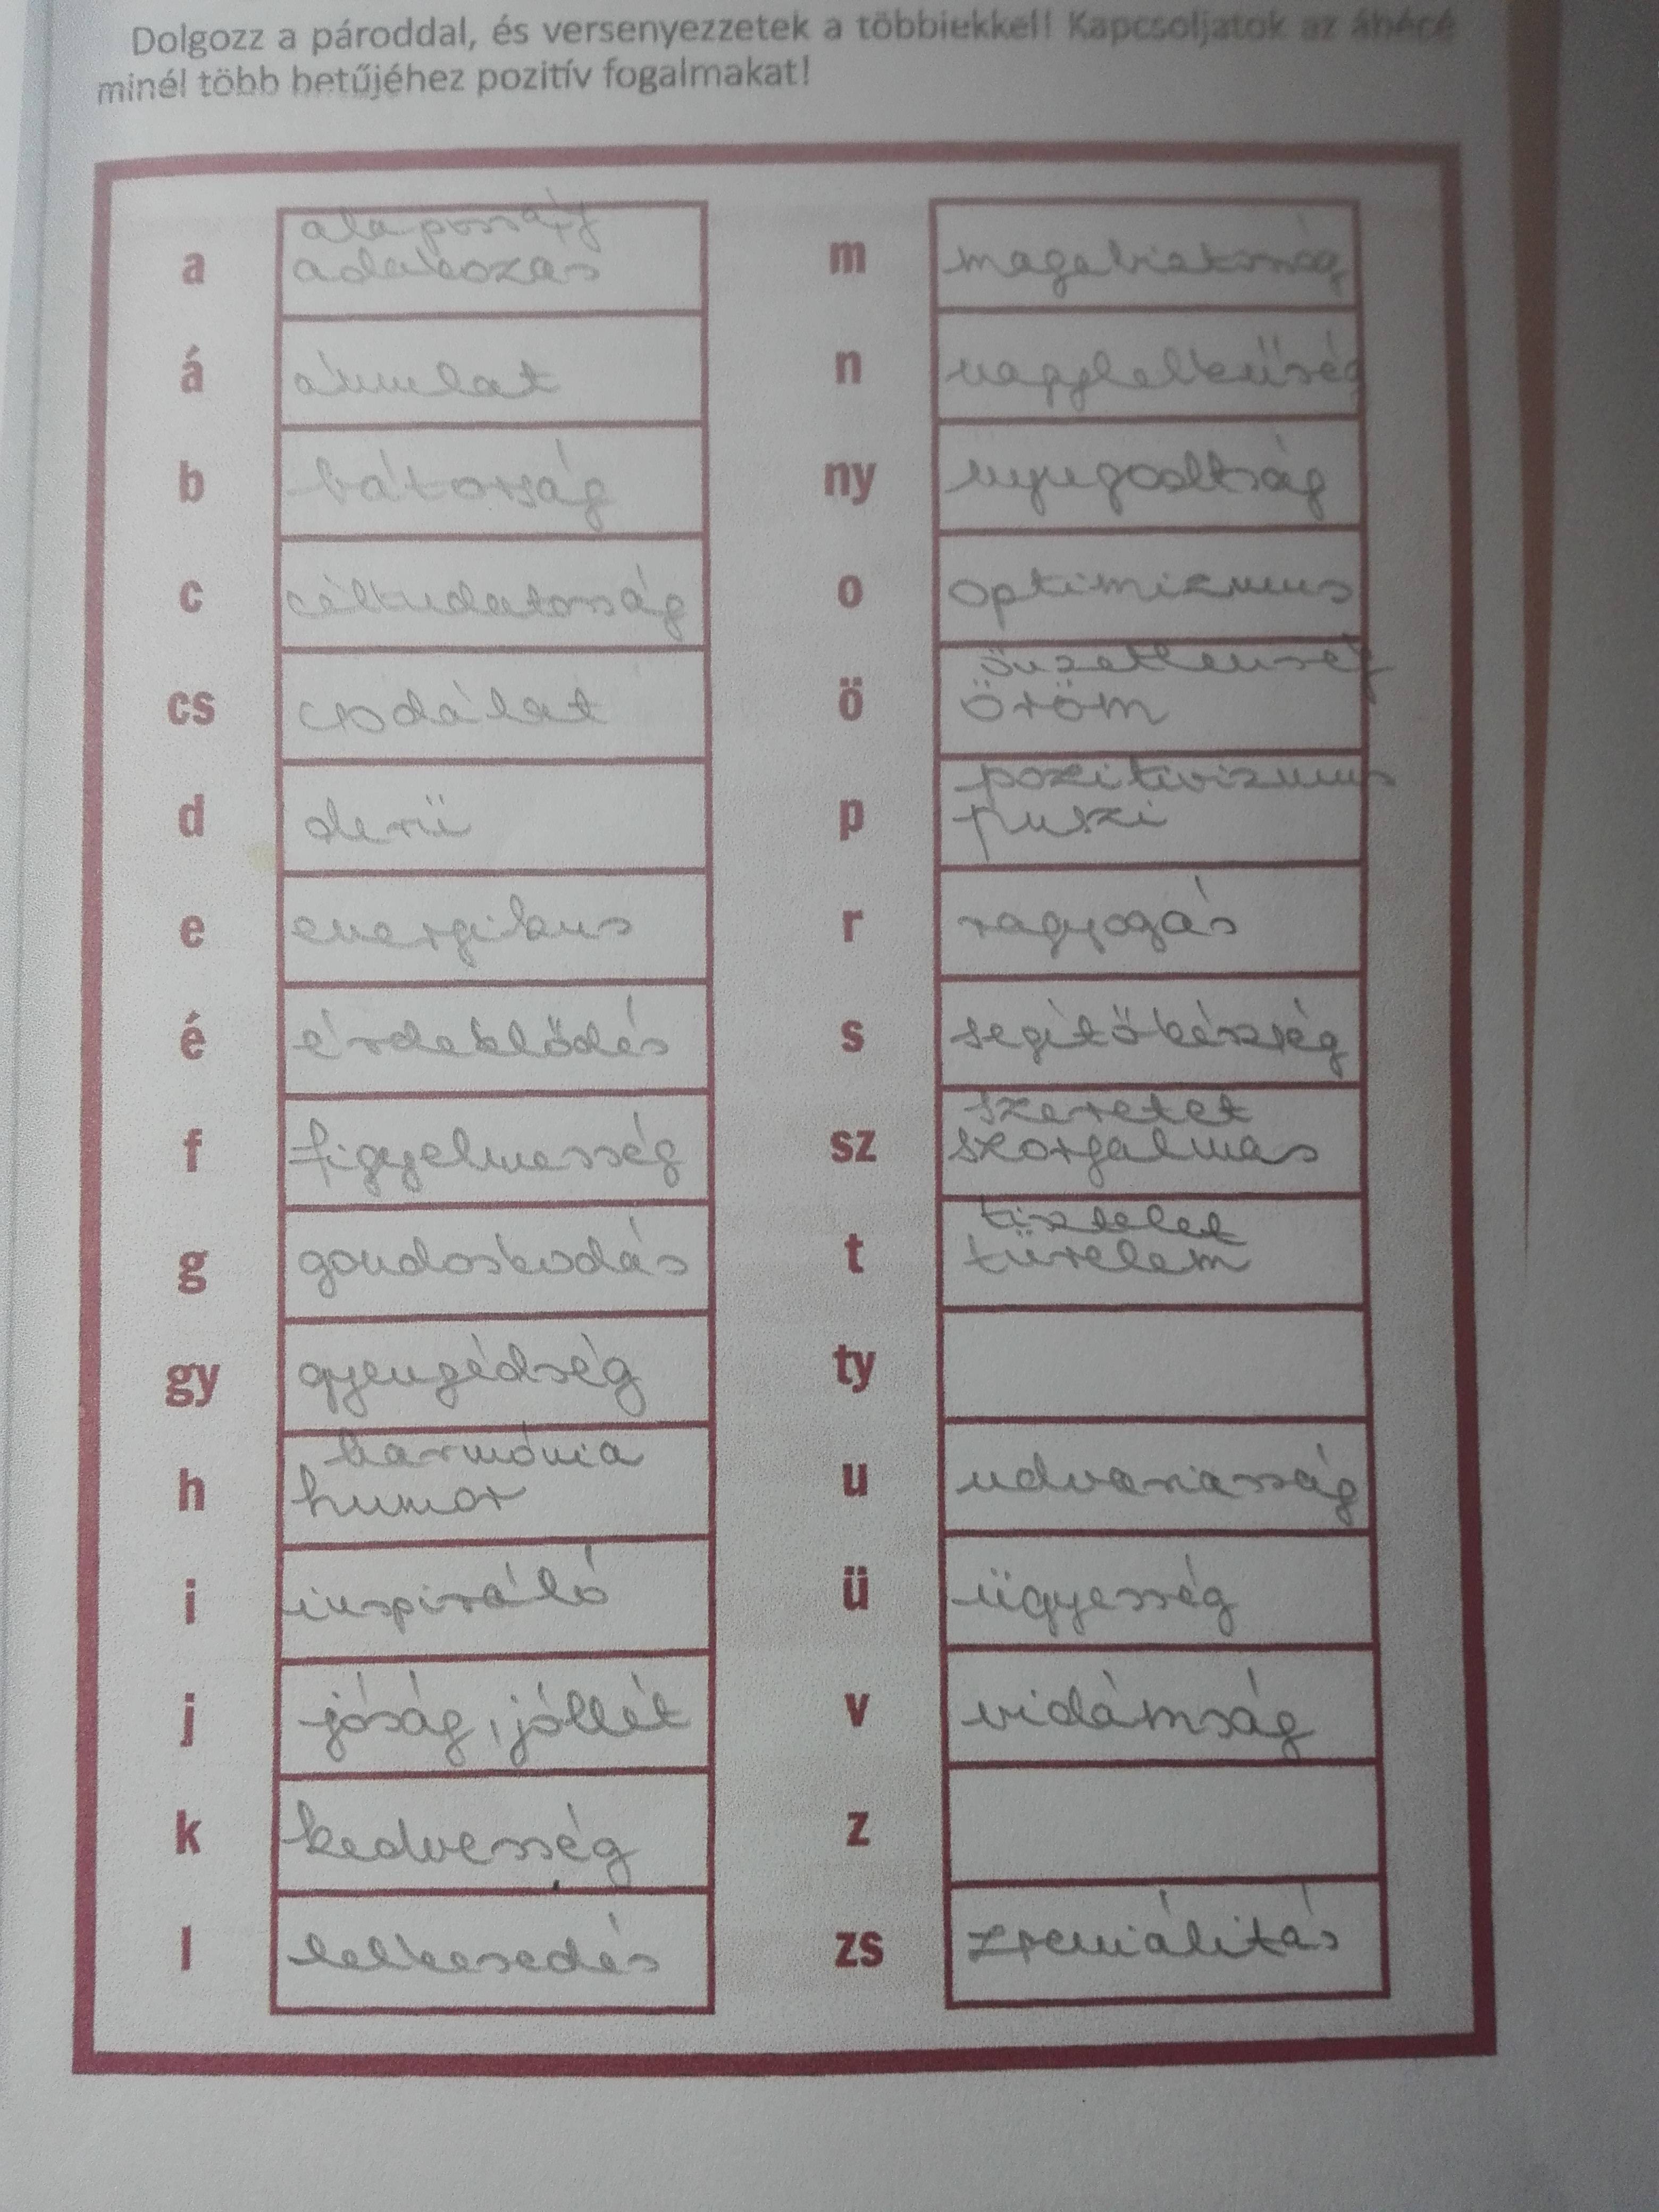 Dolgozz a pároddal, és versenyezzetek a többiekkel! Kapcsoljatok az ábécé
minél több betűjéhez pozitív fogalmakat!
a
alaposság
adakozás
á
ámulat
b
bátorság
c
céltudatosság
cs
csodálat
d
derű
e
energikus
é
érdeklődés
f
figyelmesség
g
gondoskodás
gy
gyengédség
h
harmónia
humor
i
inspiráló
j
jóság, jóllét
k
kedvesség
l
lelkesedés
m
magabiztosság
n
nagylelkűség
ny
nyugodtság
o
optimizmus
ö
önzetlenség
öröm
p
pozitivizmus
puszi
r
ragyogás
s
segítőkészség
sz
szeretet
szorgalmas
t
tisztelet
türelem
ty
u
udvariasság
ü
ügyesség
v
vidámság
z
zs
zseniálitás